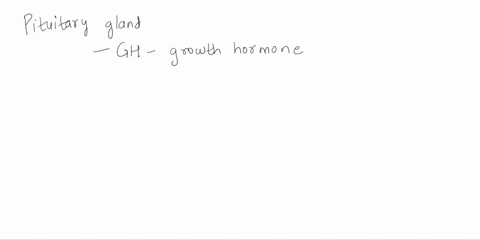 Pituitary gland
— GH – growth hormone